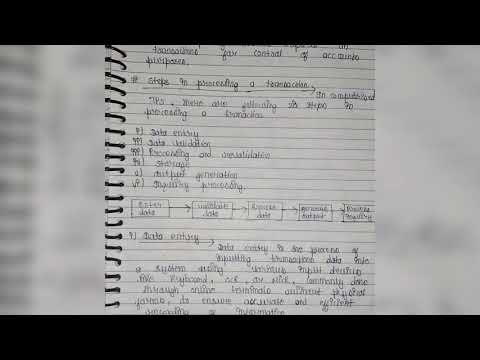 transactions for control of accounts
purposes.
# Steps in processing a transaction
In computerized
TPS, there are following six steps in
processing a transaction
i) Data entry
ii) Data validation
iii) Processing and revalidation
iv) Storage
v) Output generation
vi) Inquiry processing.
Enter data → Validate data → Process data → Generate output → Process Inquiry
i) Data entry
Data entry is the process of
inputting transaction data into
a system using various input devices
like keyboard, OCR, or MICR, commonly done
through online terminals without physical
formats, to ensure accurate and efficient
recording of information